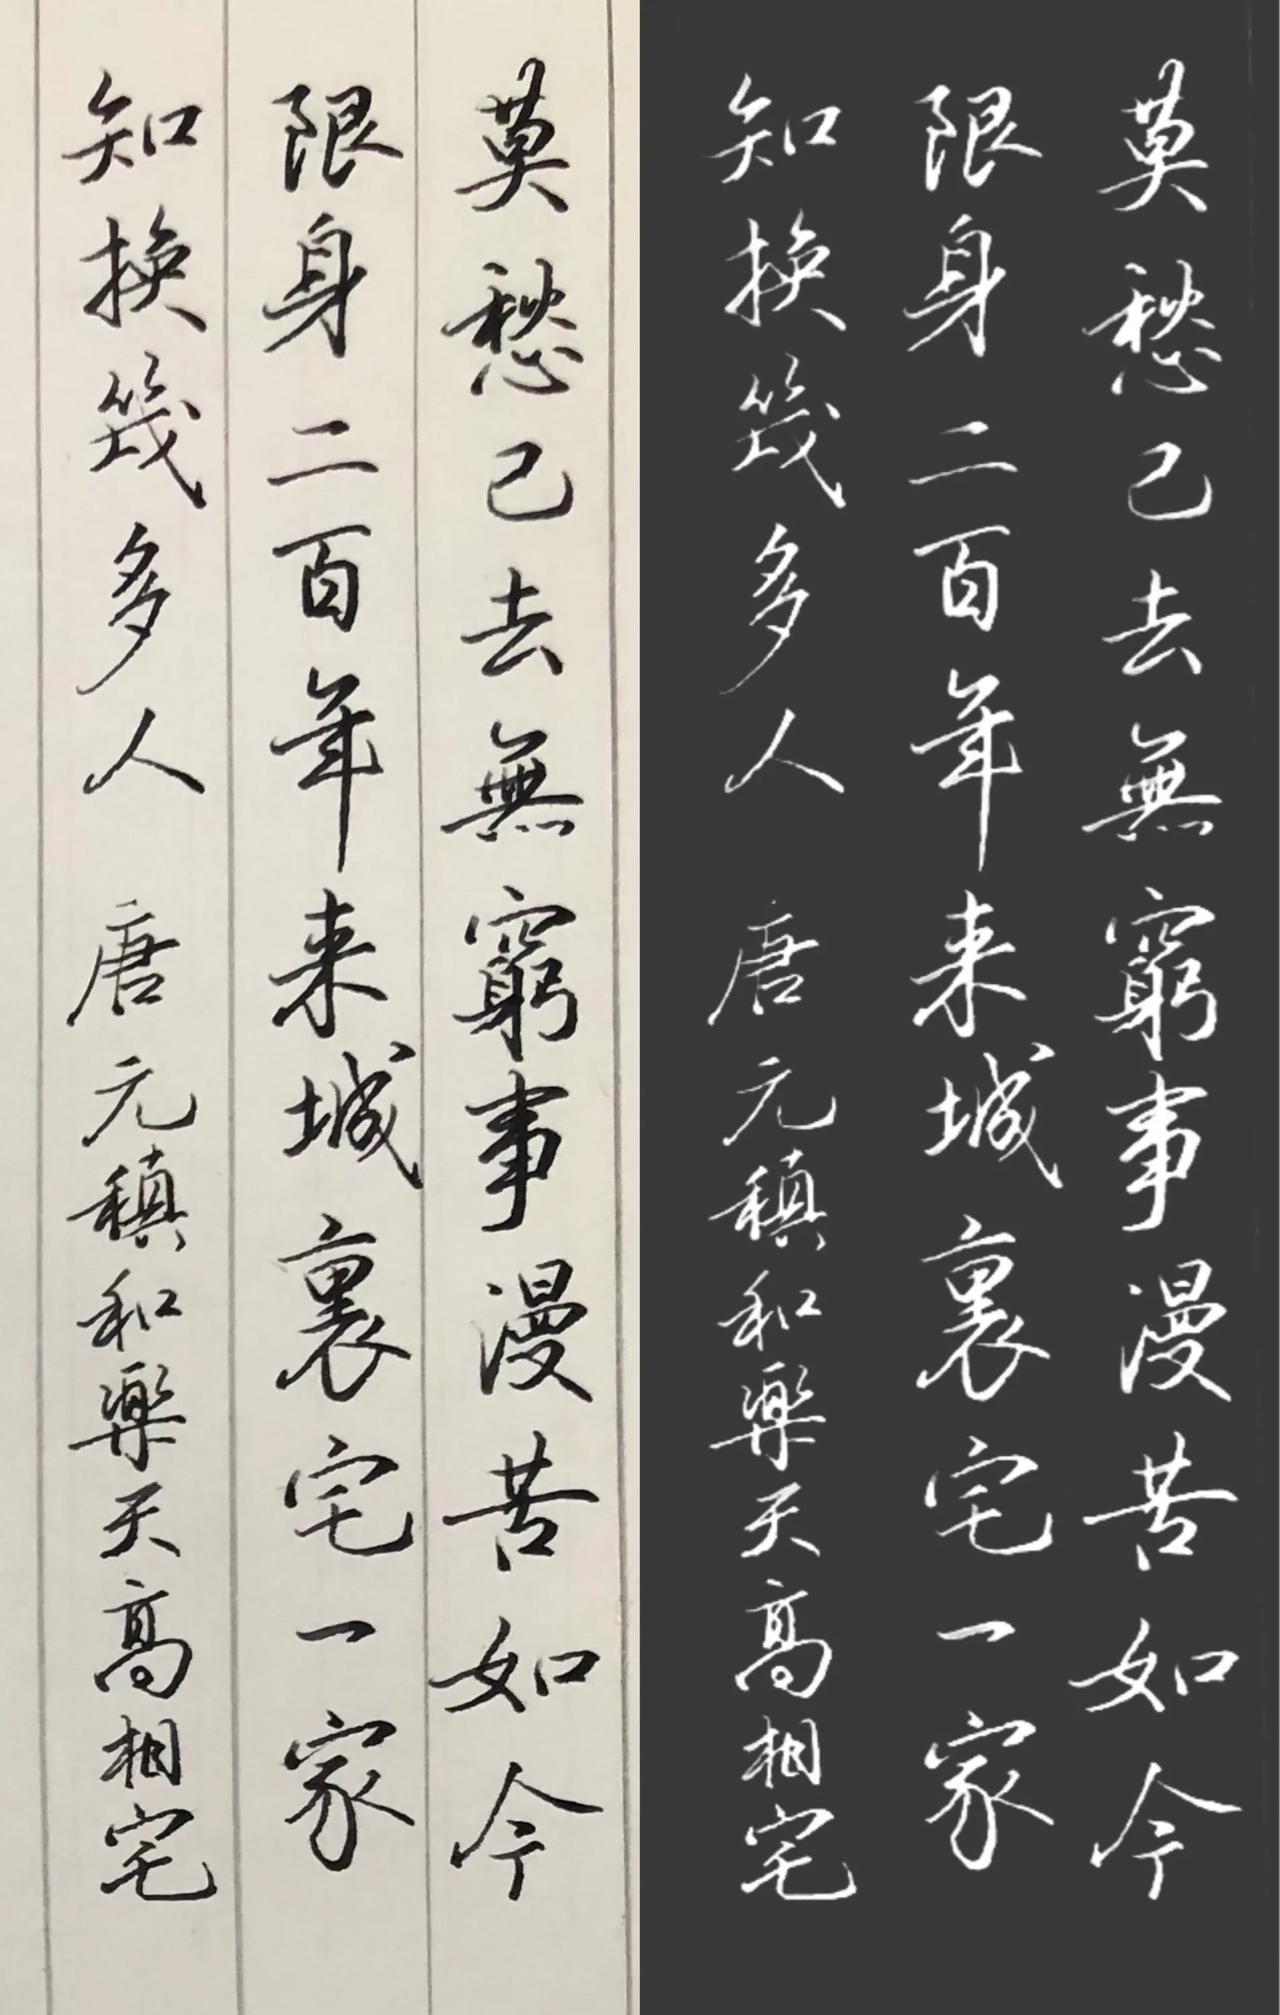 莫愁已去無窮事漫苦如今
限身二百年来城裏宅一家
知換幾多人 唐元稹和樂天高相宅
莫愁已去無窮事漫苦如今
限身二百年来城裏宅一家
知換幾多人 唐元稹和樂天高相宅